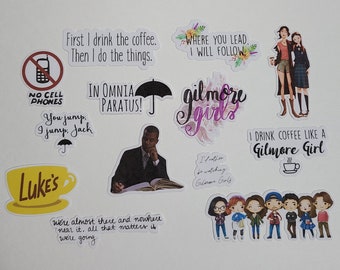 First I drink the coffee.
Then I do the things.
WHERE YOU LEAD,
I WILL FOLLOW
NO CELL
PHONES
IN OMNIA
PARATUS!
gilmore
girls
You jump,
I jump, Jack
I DRINK COFFEE LIKE A
Gilmore Girl
I'd rather
be watching
Gilmore Girls
LUKE'S
we're almost there and nowhere
near it. all that matters is
we're going